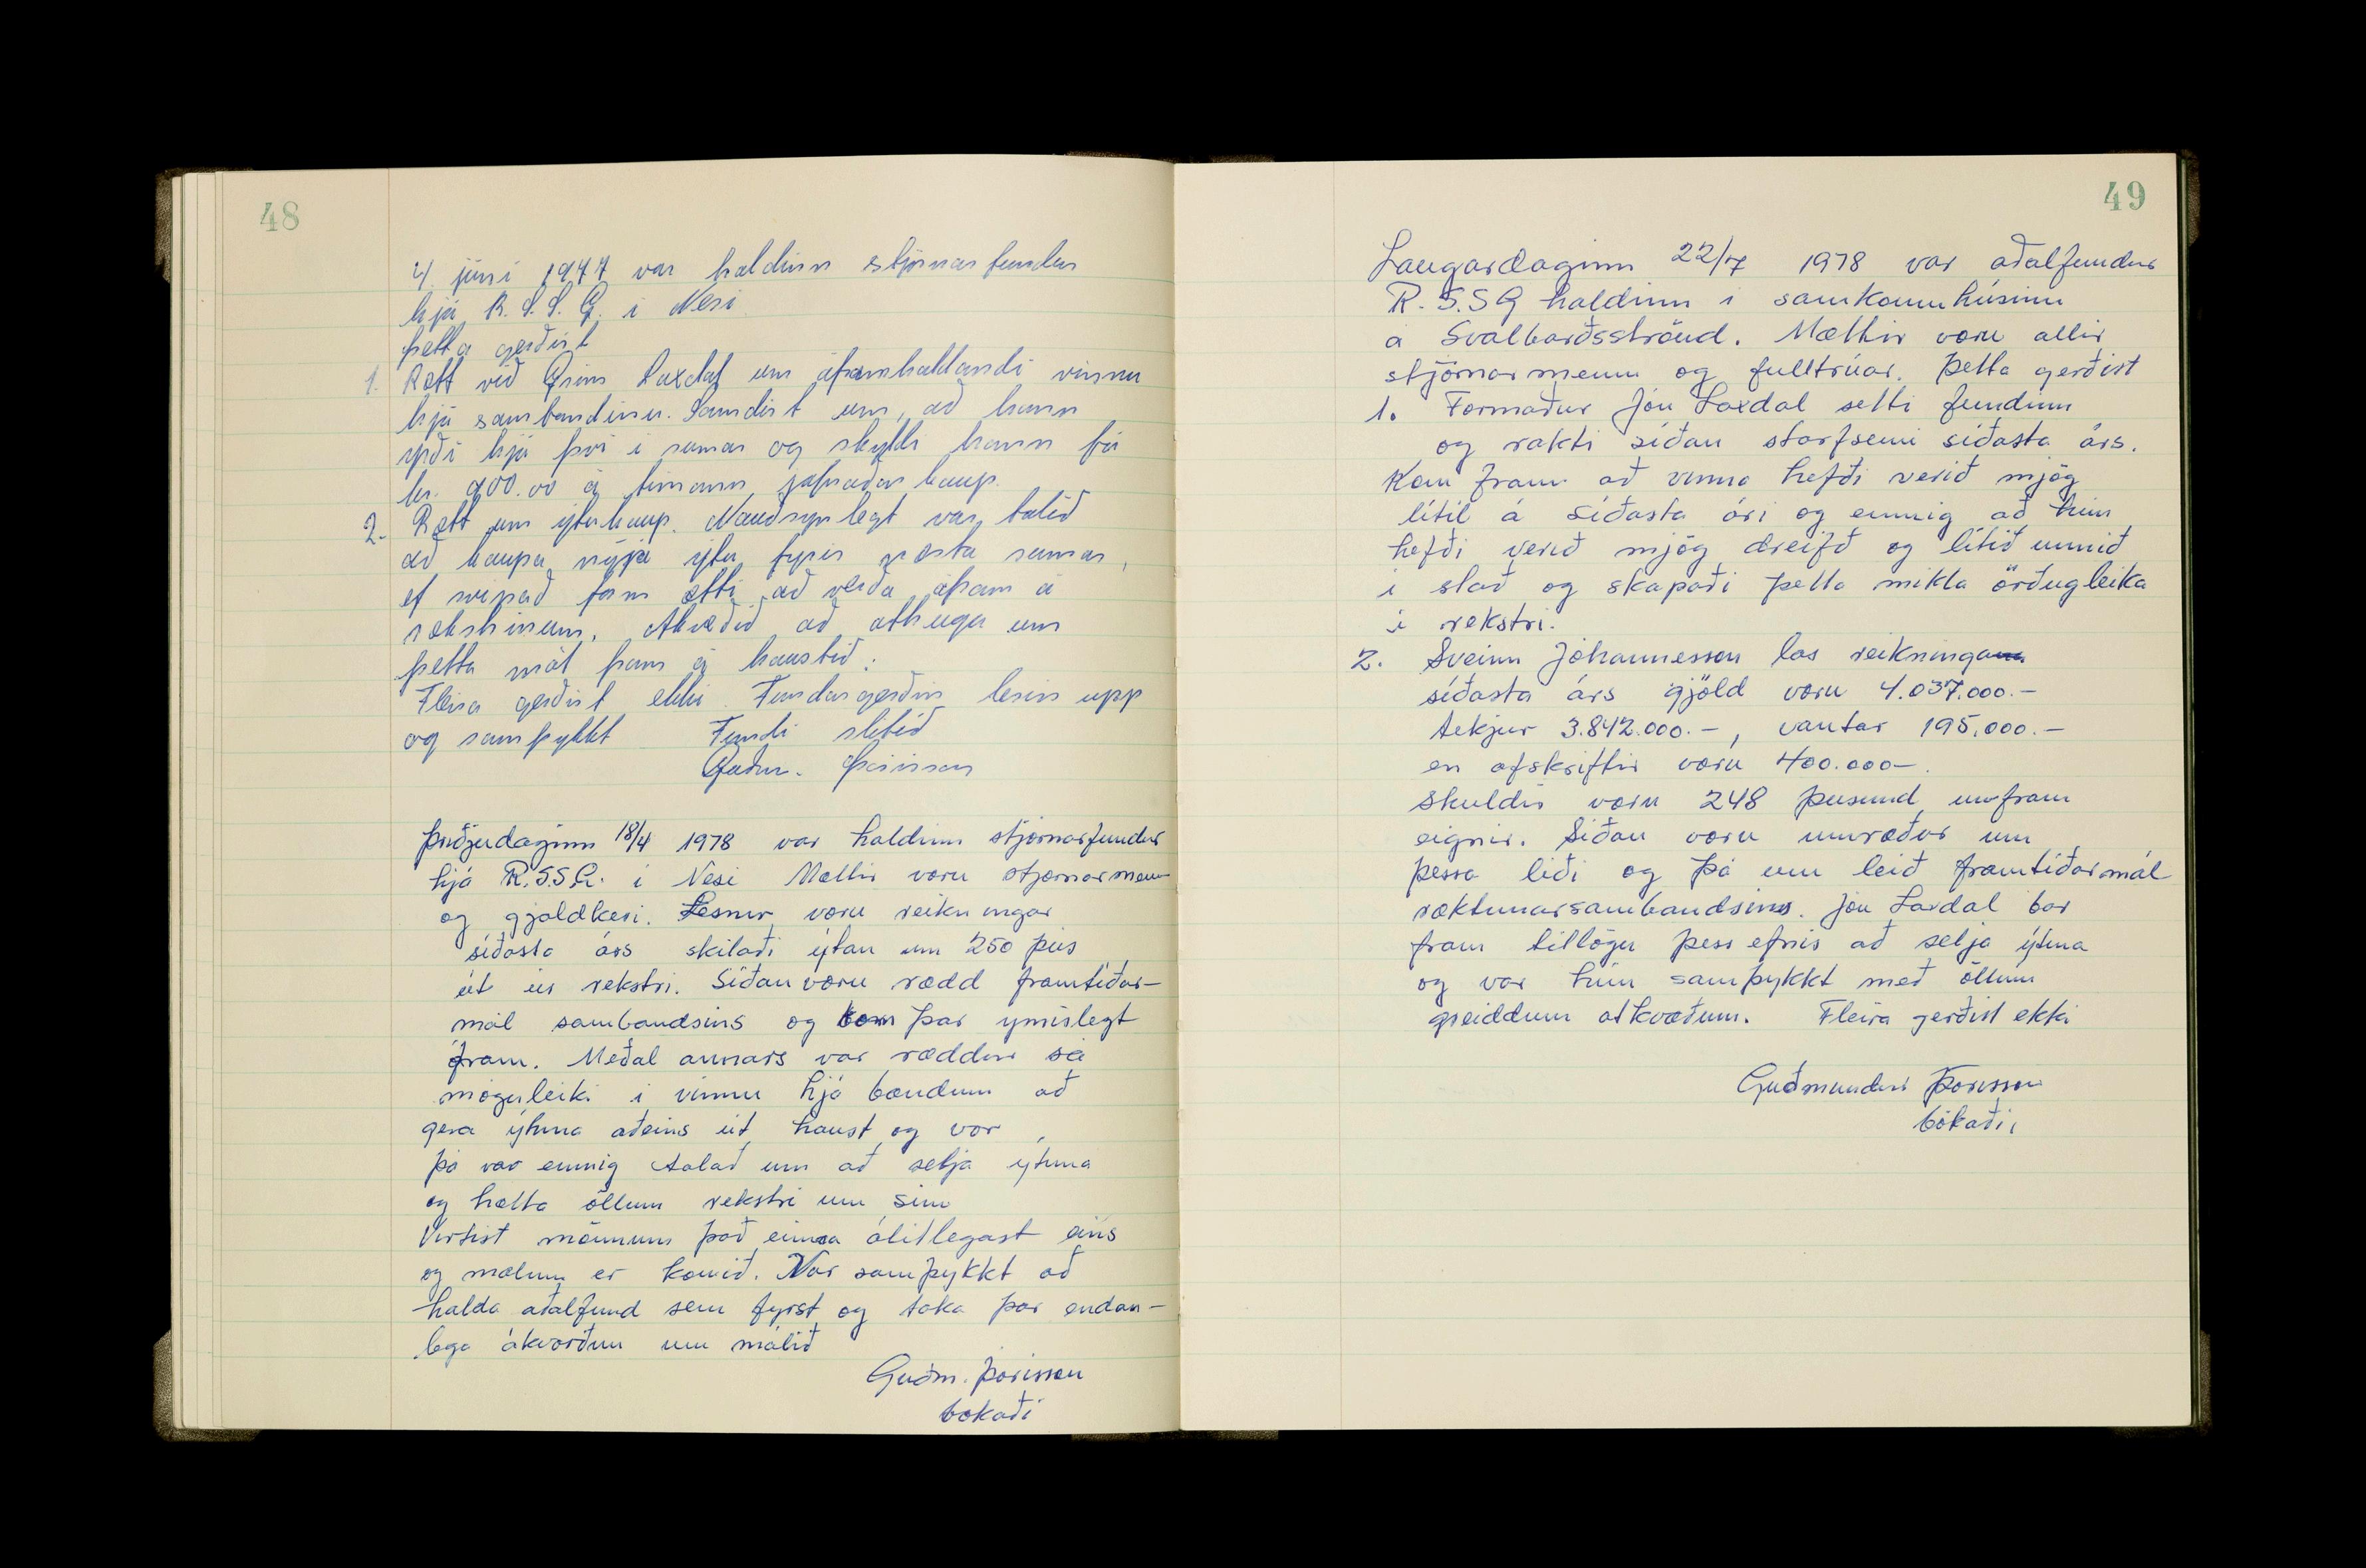 48
4. júní 1977 var haldinn stjórnarfundur
hjá R.S.S.G. í Nesi
þetta gerðist
1. Rætt við Grím Laxdal um áframhaldandi vinnu
hjá sambandinu. Samdist um, að hann
ynni hjá því í sumar og skyldi hann fá
kr. 900.00 á tímann jafnaðar kaup.
2. Rætt um ýtukaup. Nauðsynlegt var talið
að kaupa nýja ýtu fyrir næsta sumar,
ef svipað form ætti að verða áfram á
rekstrinum. Ákveðið að athuga um
þetta mál fram á haustið.
Fleira gerðist ekki. Fundargerðin lesin upp
og samþykkt Fundi slitið
Guðm. Þórisson
Þriðjudaginn 18/4 1978 var haldinn stjórnarfundur
hjá R.S.S.G. í Nesi Mættir voru stjórnarmenn
og gjaldkeri. Lesnir voru reikningar
síðasta árs skilaði ýtan um 250 þús
út úr rekstri. Síðan voru rædd framtíðar-
mál sambandsins og kom þar ýmislegt
fram. Meðal annars var ræddur sá
möguleiki í vinnu hjá bændum að
gera ýtuna aðeins út haust og vor,
þá var einnig talað um að selja ýtuna
og hætta öllum rekstri um sinn
Virtist mönnum það einna álitlegast eins
og málum er komið. Var samþykkt að
halda aðalfund sem fyrst og taka þar endan-
lega ákvörðun um málið
Guðm. Þórisson
bókaði
49
Laugardaginn 22/7 1978 var aðalfundur
R.S.SG haldinn í samkomuhúsinu
á Svalbarðsströnd. Mættir voru allir
stjórnarmenn og fulltrúar. Þetta gerðist
1. Formaður Jón Laxdal setti fundinn
og rakti síðan starfsemi síðasta árs.
Kom fram að vinna hefði verið mjög
lítil á síðasta ári og einnig að hún
hefði verið mjög dreifð og lítið unnið
í stað og skapaði þetta mikla örðugleika
í rekstri.
2. Sveinn Jóhannesson las reikninga
síðasta árs gjöld voru 4.037.000.-
tekjur 3.842.000.-, vantar 195.000.-
en afskriftir voru 400.000-.
Skuldir voru 248 þúsund umfram
eignir. Síðan voru umræður um
þessa liði og þá um leið framtíðarmál
ræktunarsambandsins. Jón Laxdal bar
fram tillögu þess efnis að selja ýtuna
og var hún samþykkt með öllum
greiddum atkvæðum. Fleira gerðist ekki
Guðmundur Þórisson
bókaði,